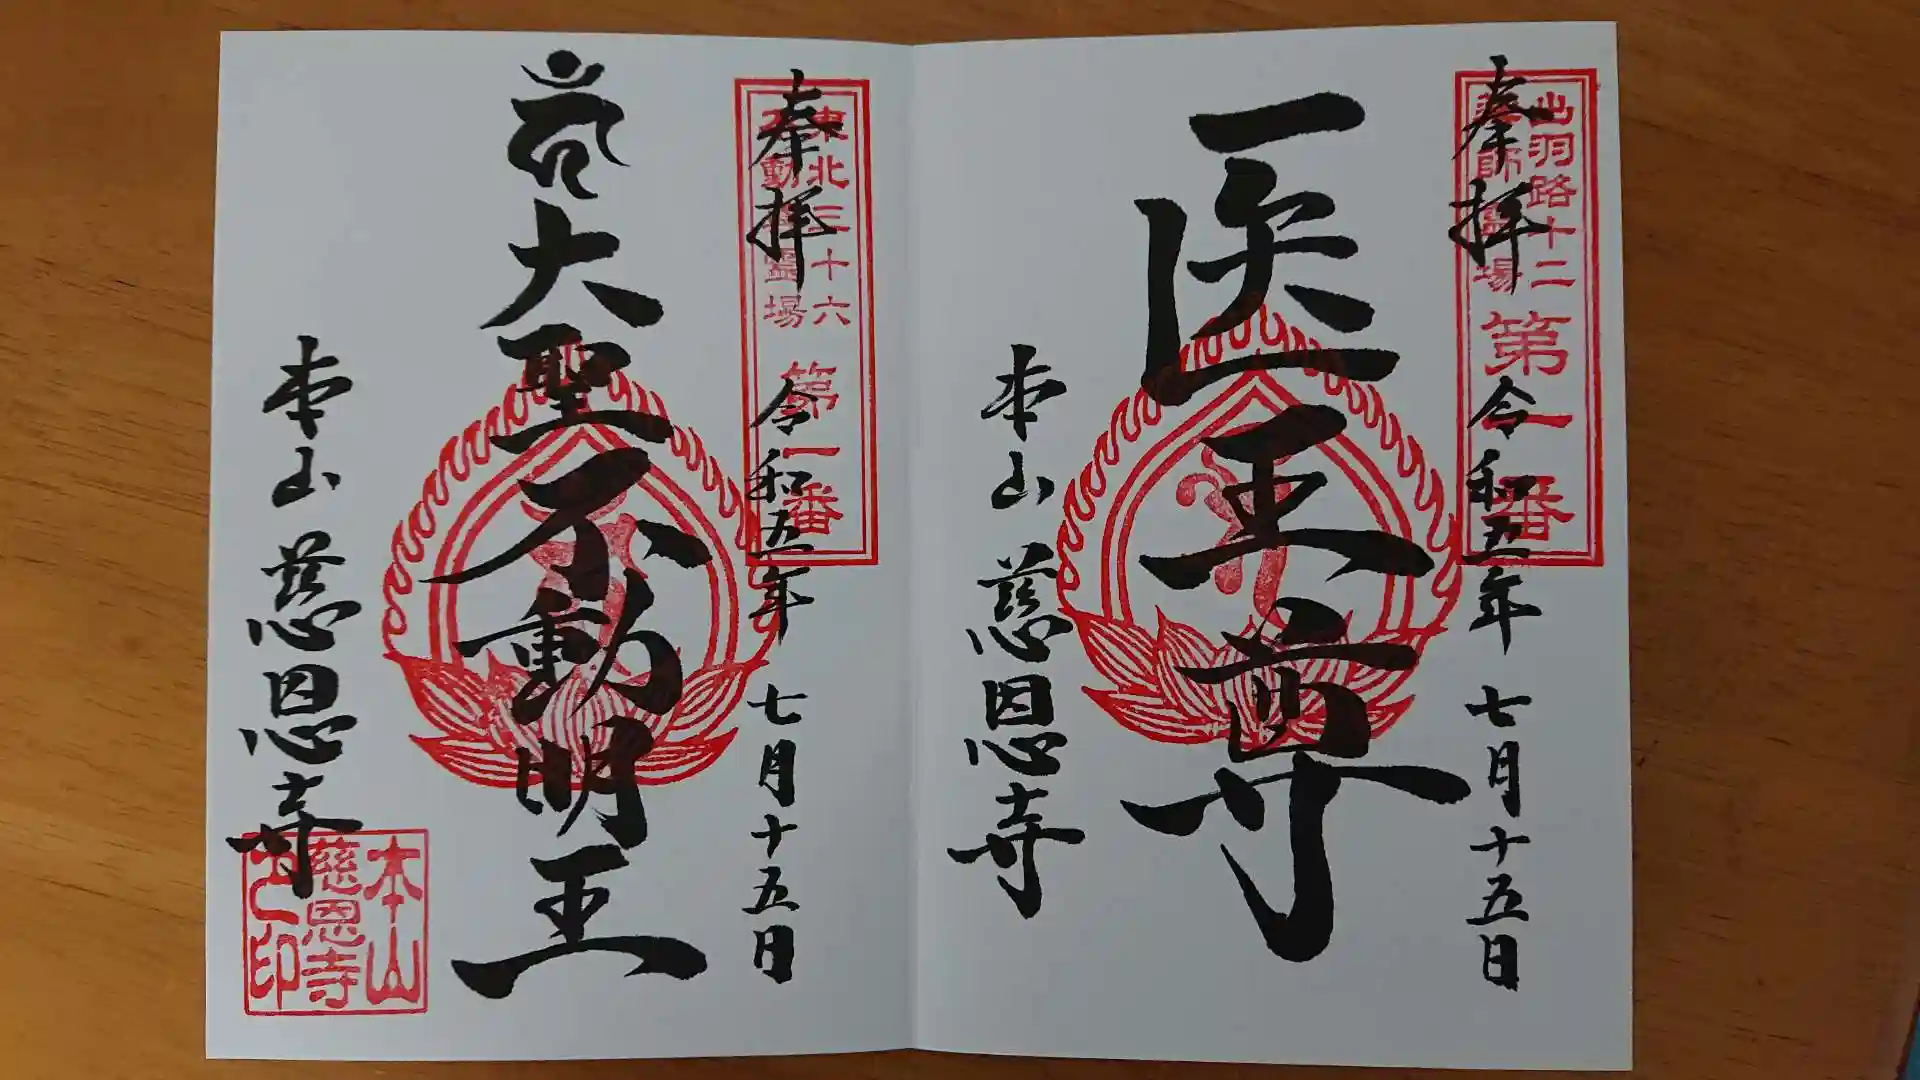 奉拝
出羽路十二
薬師霊場
第一番
令和五年 七月十五日
医王尊
本山 慈恩寺
奉拝
東北三十六
不動霊場
第一番
令和五年 七月十五日
大聖不動明王
本山 慈恩寺
本山
慈恩寺
之印